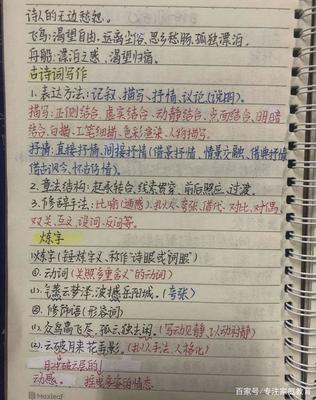 诗人的无边愁怨。
飞鸟:渴望自由,远离尘俗,思乡愁肠,孤独漂泊。
舟船:漂泊之感、渴望归宿。
古诗词写作
1.表达方法:记叙、描写、抒情、议论、(说明)。
描写:正侧结合、虚实结合、动静结合、点面结合、明暗
结合、白描、工笔细描、色彩渲染、人物描写。
抒情:直接抒情、间接抒情(借景抒情、情景交融、借典抒情
借古讽今、怀古伤情)。
2.章法结构:起承转合、线索贯穿、前后照应、过渡。
3.修辞手法:比喻(通感)、拟人、夸张、借代、对比、对偶、
双关、互文、设问、反问等。
炼字
1.炼字(锤炼字义、称作"诗眼"或"词眼")
①.动词("关照多重含义"的动词)
(1).气蒸云梦泽,波撼岳阳城。(夸张)
②.修饰语(形容词)
(1).众鸟高飞尽,孤云独去闲。(写动见静,以动衬静)
(2).云破月来花弄影。(拟人手法、人格化)
月冲破云层的
动感。 摇曳多姿的情态
Maxleaf
百家号/专注家庭教育